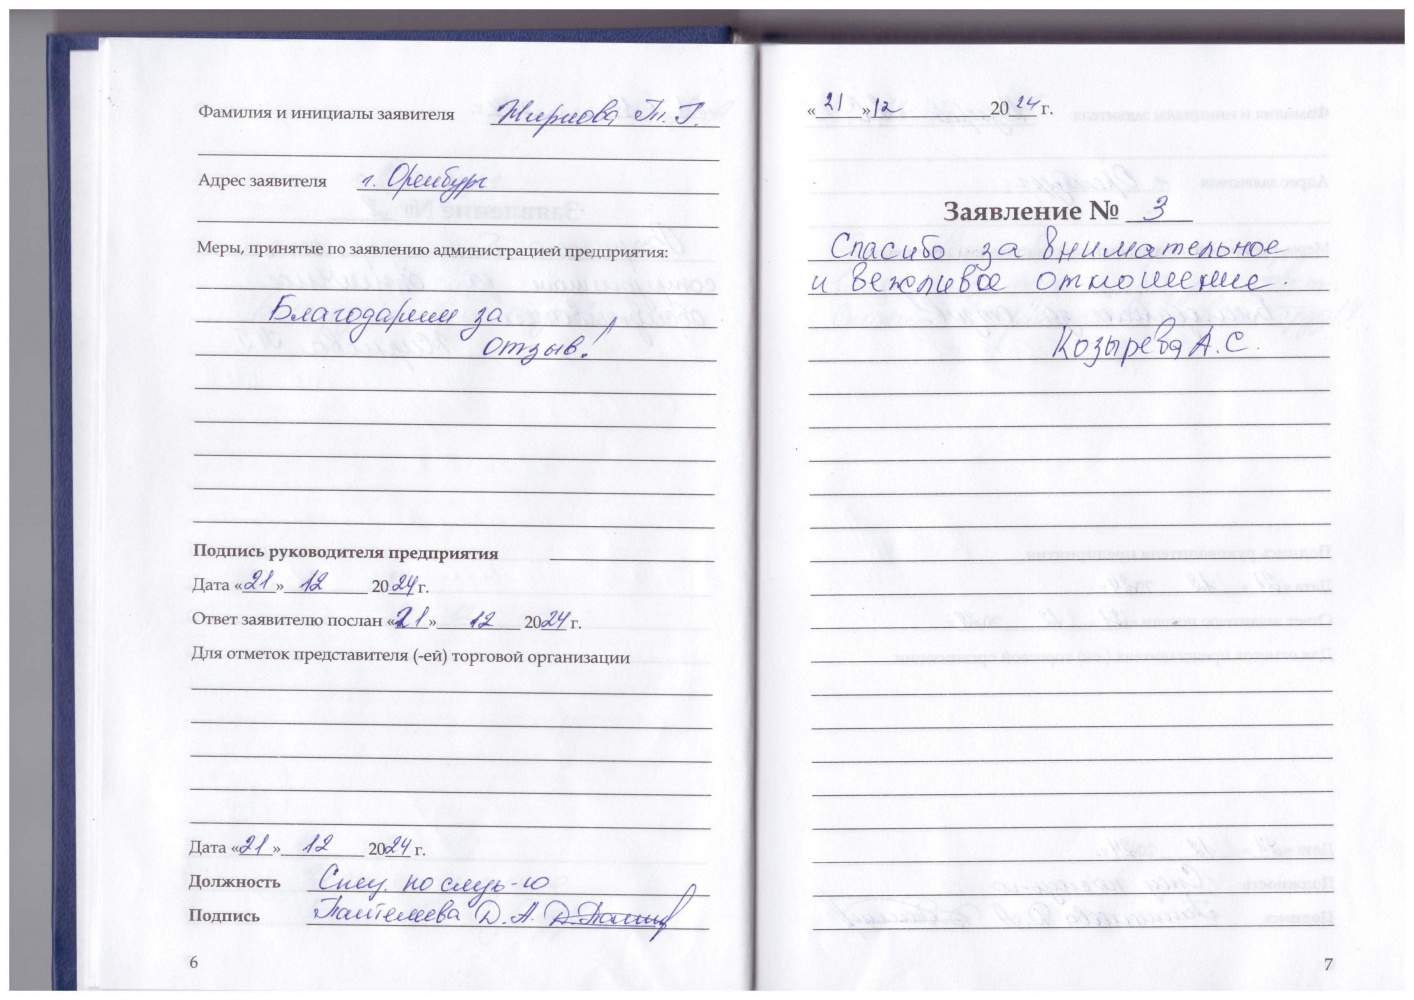 Фамилия и инициалы заявителя Жирнова Т. Г.
Адрес заявителя г. Оренбург
Меры, принятые по заявлению администрацией предприятия:
Благодарим за
отзыв!
Подпись руководителя предприятия
Дата «21» 12 2024 г.
Ответ заявителю послан «21» 12 2024 г.
Для отметок представителя (-ей) торговой организации
Дата «21» 12 2024 г.
Должность Спец.
Подпись Пантелеева Д. А.
6
«21» 12 2024 г.
Заявление № 3
Спасибо за внимательное
и вежливое отношение.
Козырева А. С.
7